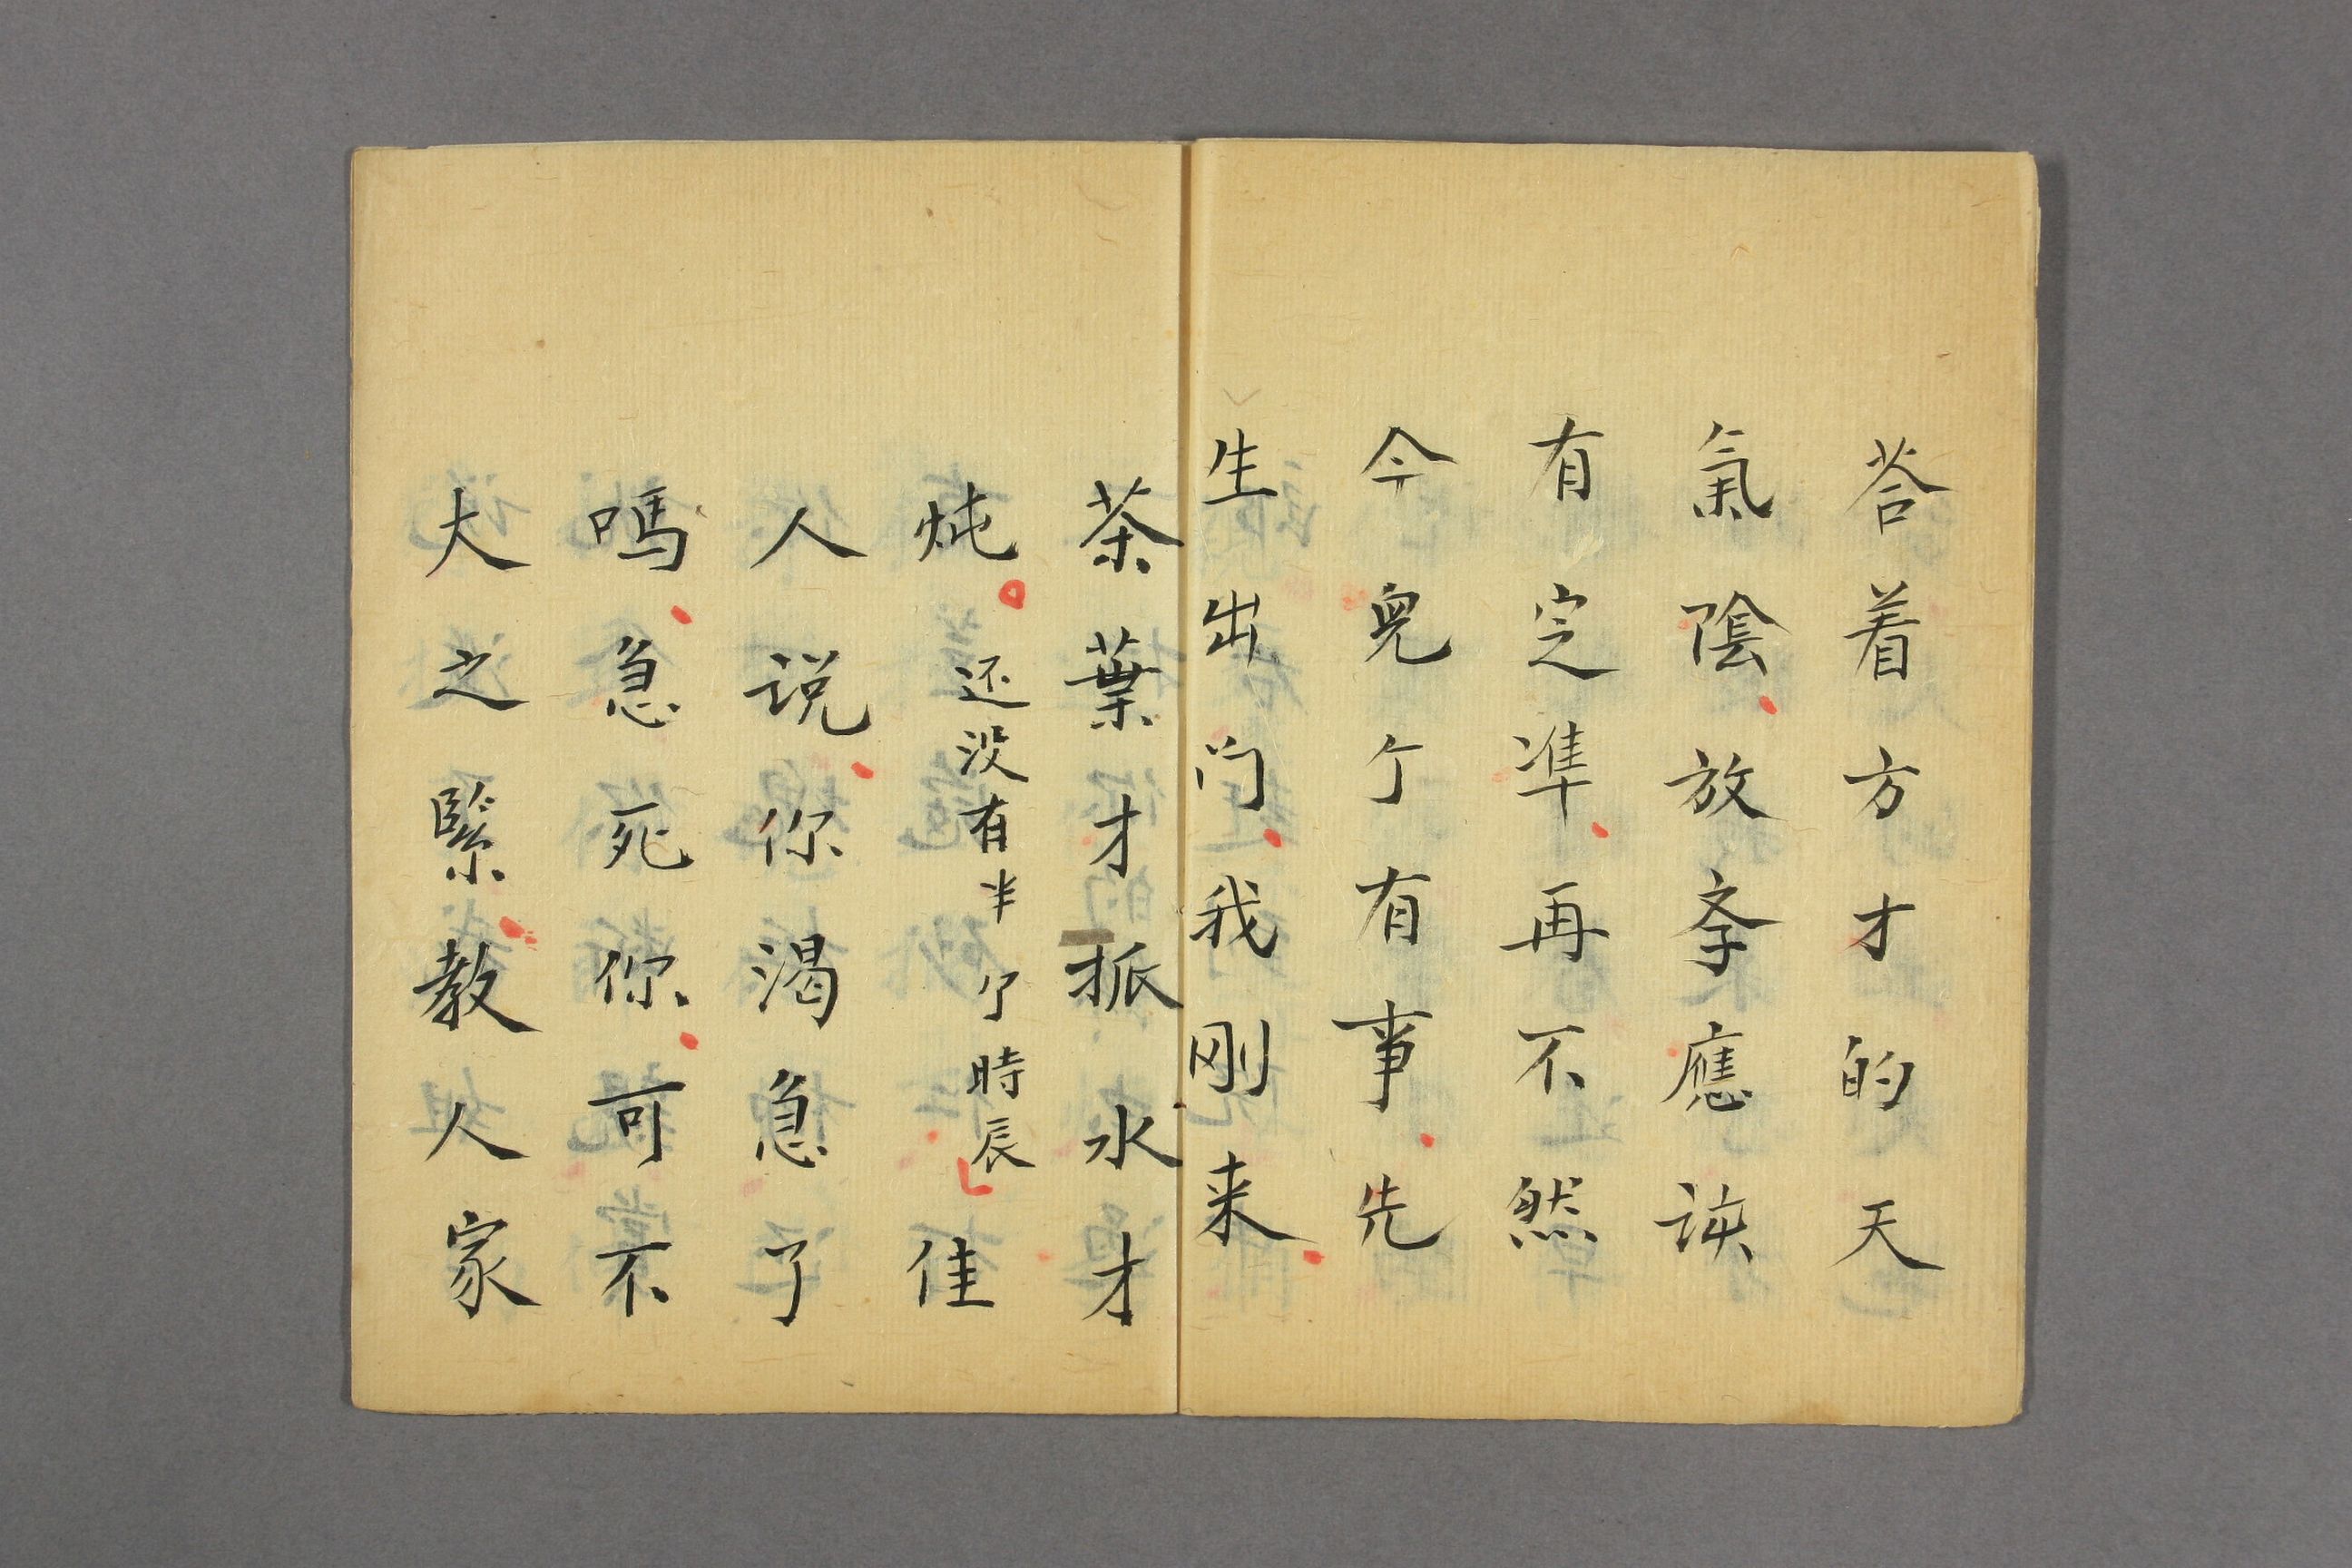 荅着方才的天
氣陰放斈應誒
有定準再不然
今兒个有事先
生出门我刚来
茶葉才抓水才
炖还没有半个時辰佳
人说你渴急了
嗎急死你可不
大之緊教人家